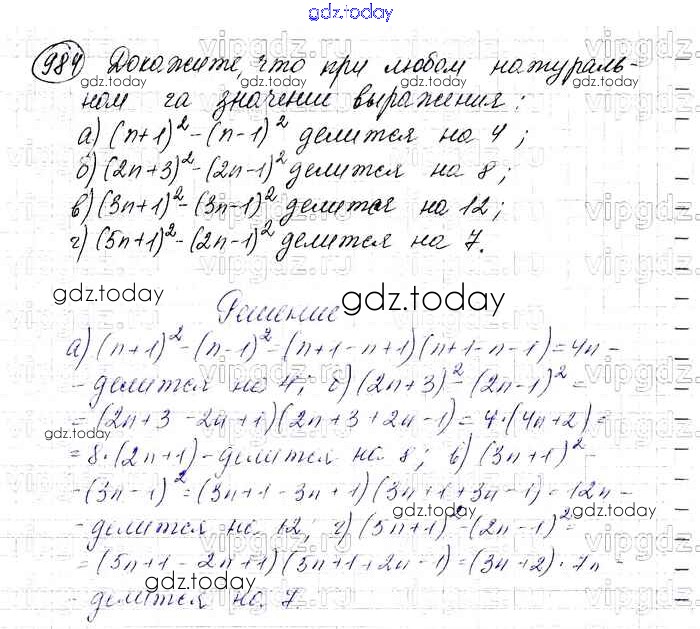 gdz.today
984 Докажите, что при любом натураль-
ном га значении выражения:
а) (n+1)² - (n-1)² делится на 4;
б) (2n+3)² - (2n-1)² делится на 8;
в) (3n+1)² - (3n-1)² делится на 12;
г) (5n+1)² - (2n-1)² делится на 7.
Решение
а) (n+1)² - (n-1)² = (n+1-n+1)(n+1-n-1) = 4n -
- делится на 4; б) (2n+3)² - (2n-1)² =
= (2n+3-2n+1)(2n+3+2n-1) = 4·(4n+2) =
= 8·(2n+1) - делится на 8; в) (3n+1)² -
- (3n-1)² = (3n+1-3n+1)(3n+1+3n-1) = 12n -
- делится на 12; г) (5n+1)² - (2n-1)² =
= (5n+1-2n+1)(5n+1+2n-1) = (3n+2)·7n -
- делится на 7